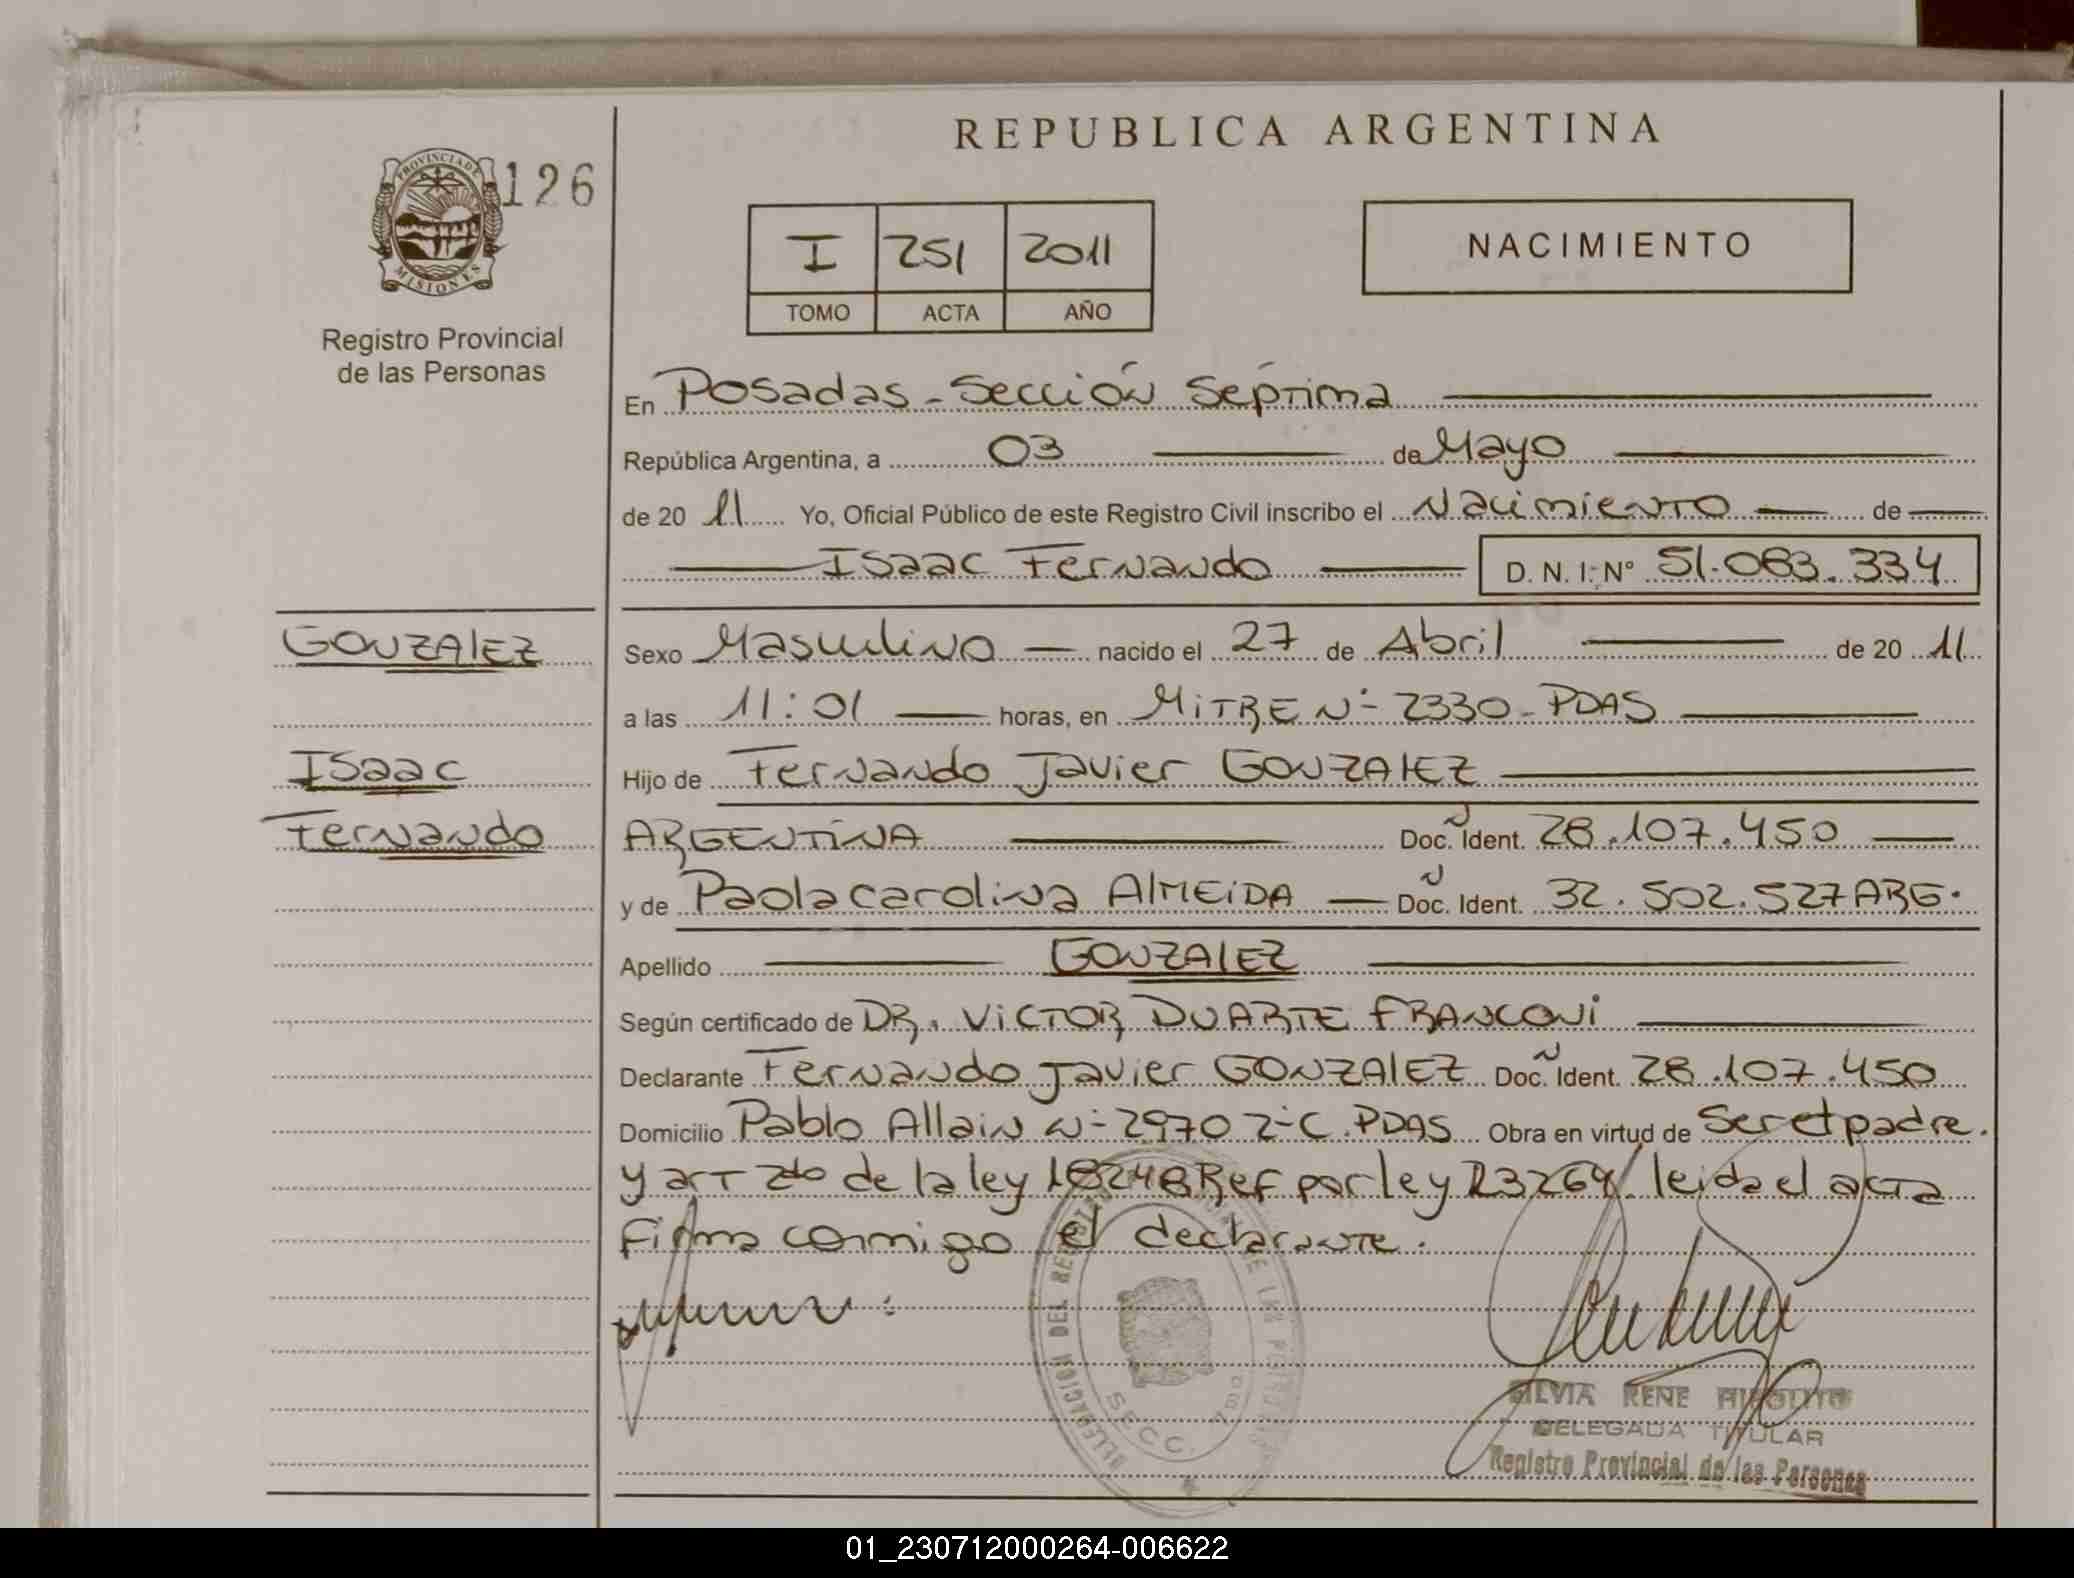 REPUBLICA ARGENTINA
PROVINCIA DE
MISIONES
126
Registro Provincial
de las Personas
I 251 2011
TOMO ACTA AÑO
NACIMIENTO
En Posadas - Sección Séptima
República Argentina, a 03 de Mayo
de 20 11 Yo, Oficial Público de este Registro Civil inscribo el Nacimiento de
Isaac Fernando D. N. I. Nº 51.083.334
GONZALEZ
Isaac
Fernando
Sexo Masculino nacido el 27 de Abril de 20 11
a las 11:01 horas, en MiTRE N° 2330 - PDAS
Hijo de Fernando Javier GONZALEZ
ARGENTINA Doc. Ident. 28.107.450
y de Paola carolina ALMEiDA Doc. Ident. 32.502.527 ARG.
Apellido GONZALEZ
Según certificado de DR. ViCTOR DUARTE FRANCONi
Declarante Fernando Javier GONZALEZ Doc. Ident. 28.107.450
Domicilio Pablo Allain N° 2970 Z°C. PDAS Obra en virtud de Ser el padre.
y art 2do de la ley 18248 Ref por ley 23264. leida el acta
firma conmigo el declarante.
DELEGACION DEL REGISTRO DE LAS PERSONAS
SECC. 7
SILVIA RENE HIPOLITO
DELEGADA TITULAR
Registro Provincial de las Personas
01_230712000264-006622